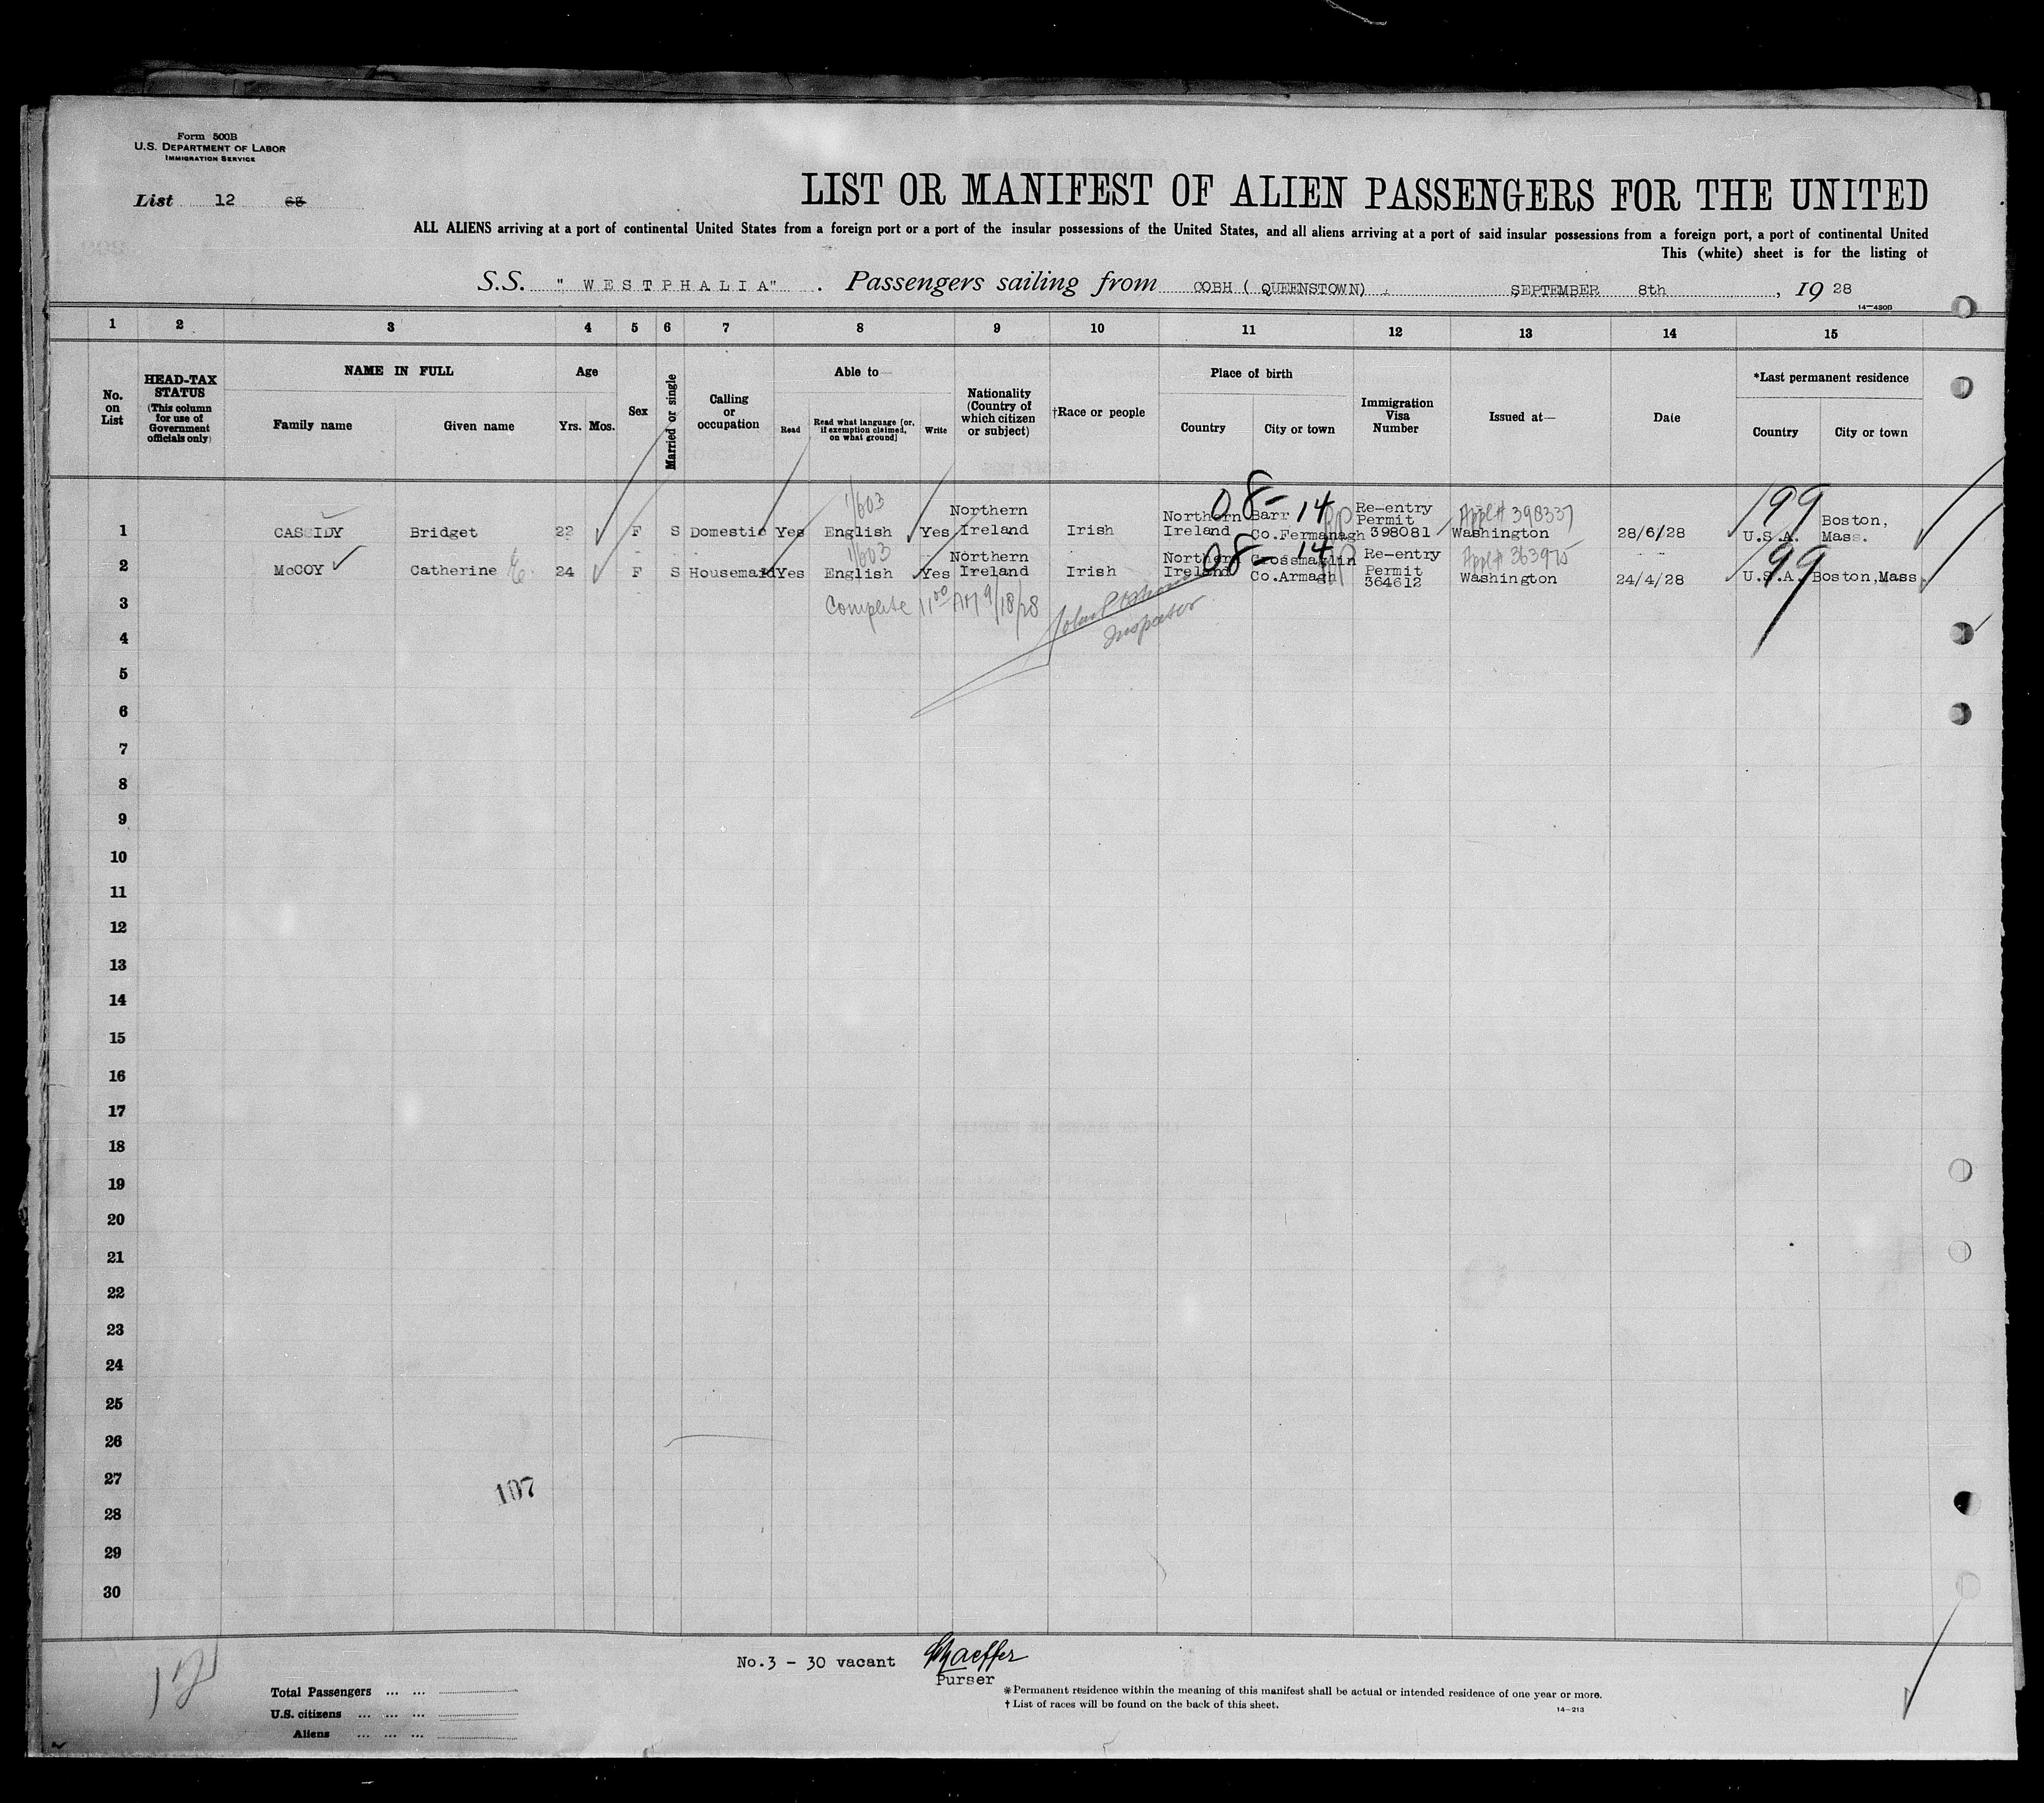 Form 500B
U.S. DEPARTMENT OF LABOR
IMMIGRATION SERVICE
List 12 63
LIST OR MANIFEST OF ALIEN PASSENGERS FOR THE UNITED
ALL ALIENS arriving at a port of continental United States from a foreign port or a port of the insular possessions of the United States, and all aliens arriving at a port of said insular possessions from a foreign port, a port of continental United
This (white) sheet is for the listing of
S.S. " WESTPHALIA" . Passengers sailing from COBH ( QUEENSTOWN) . SEPTEMBER 8th , 19 28
14—480B
1 2 3 4 5 6 7 8 9 10 11 12 13 14 15
No. on List
HEAD-TAX STATUS (This column for use of Government officials only)
NAME IN FULL
Family name Given name
Age
Yrs. Mos.
Sex
Married or single
Calling or occupation
Able to—
Read
Read what language [or, if exemption claimed, on what ground]
Write
Nationality (Country of which citizen or subject)
†Race or people
Place of birth
Country City or town
Immigration Visa Number
Issued at—
Date
*Last permanent residence
Country City or town
1/603 08- 14 Appl# 398337 199
1 CASSIDY Bridget 22 F S Domestic Yes English Yes Northern Ireland Irish Northern Ireland Barr Co.Fermanagh Re-entry Permit 398081 Washington 28/6/28 U.S.A. Boston, Mass.
1/603 08- 14 Appl# 363975 99
2 McCOY Catherine E. 24 F S Housemaid Yes English Yes Northern Ireland Irish Northern Ireland Crossmaglin Co.Armagh Re-entry Permit 364612 Washington 24/4/28 U.S.A. Boston,Mass.
3
Complete 11 00 AM 9/18/28
Inspector
4
5
6
7
8
9
10
11
12
13
14
15
16
17
18
19
20
21
22
23
24
25
26
27
107
28
29
30
No.3 - 30 vacant Schaeffer
Purser
12
Total Passengers ... ...
U.S. citizens ... ... ...
Aliens ... ... ...
* Permanent residence within the meaning of this manifest shall be actual or intended residence of one year or more.
† List of races will be found on the back of this sheet.
14—213